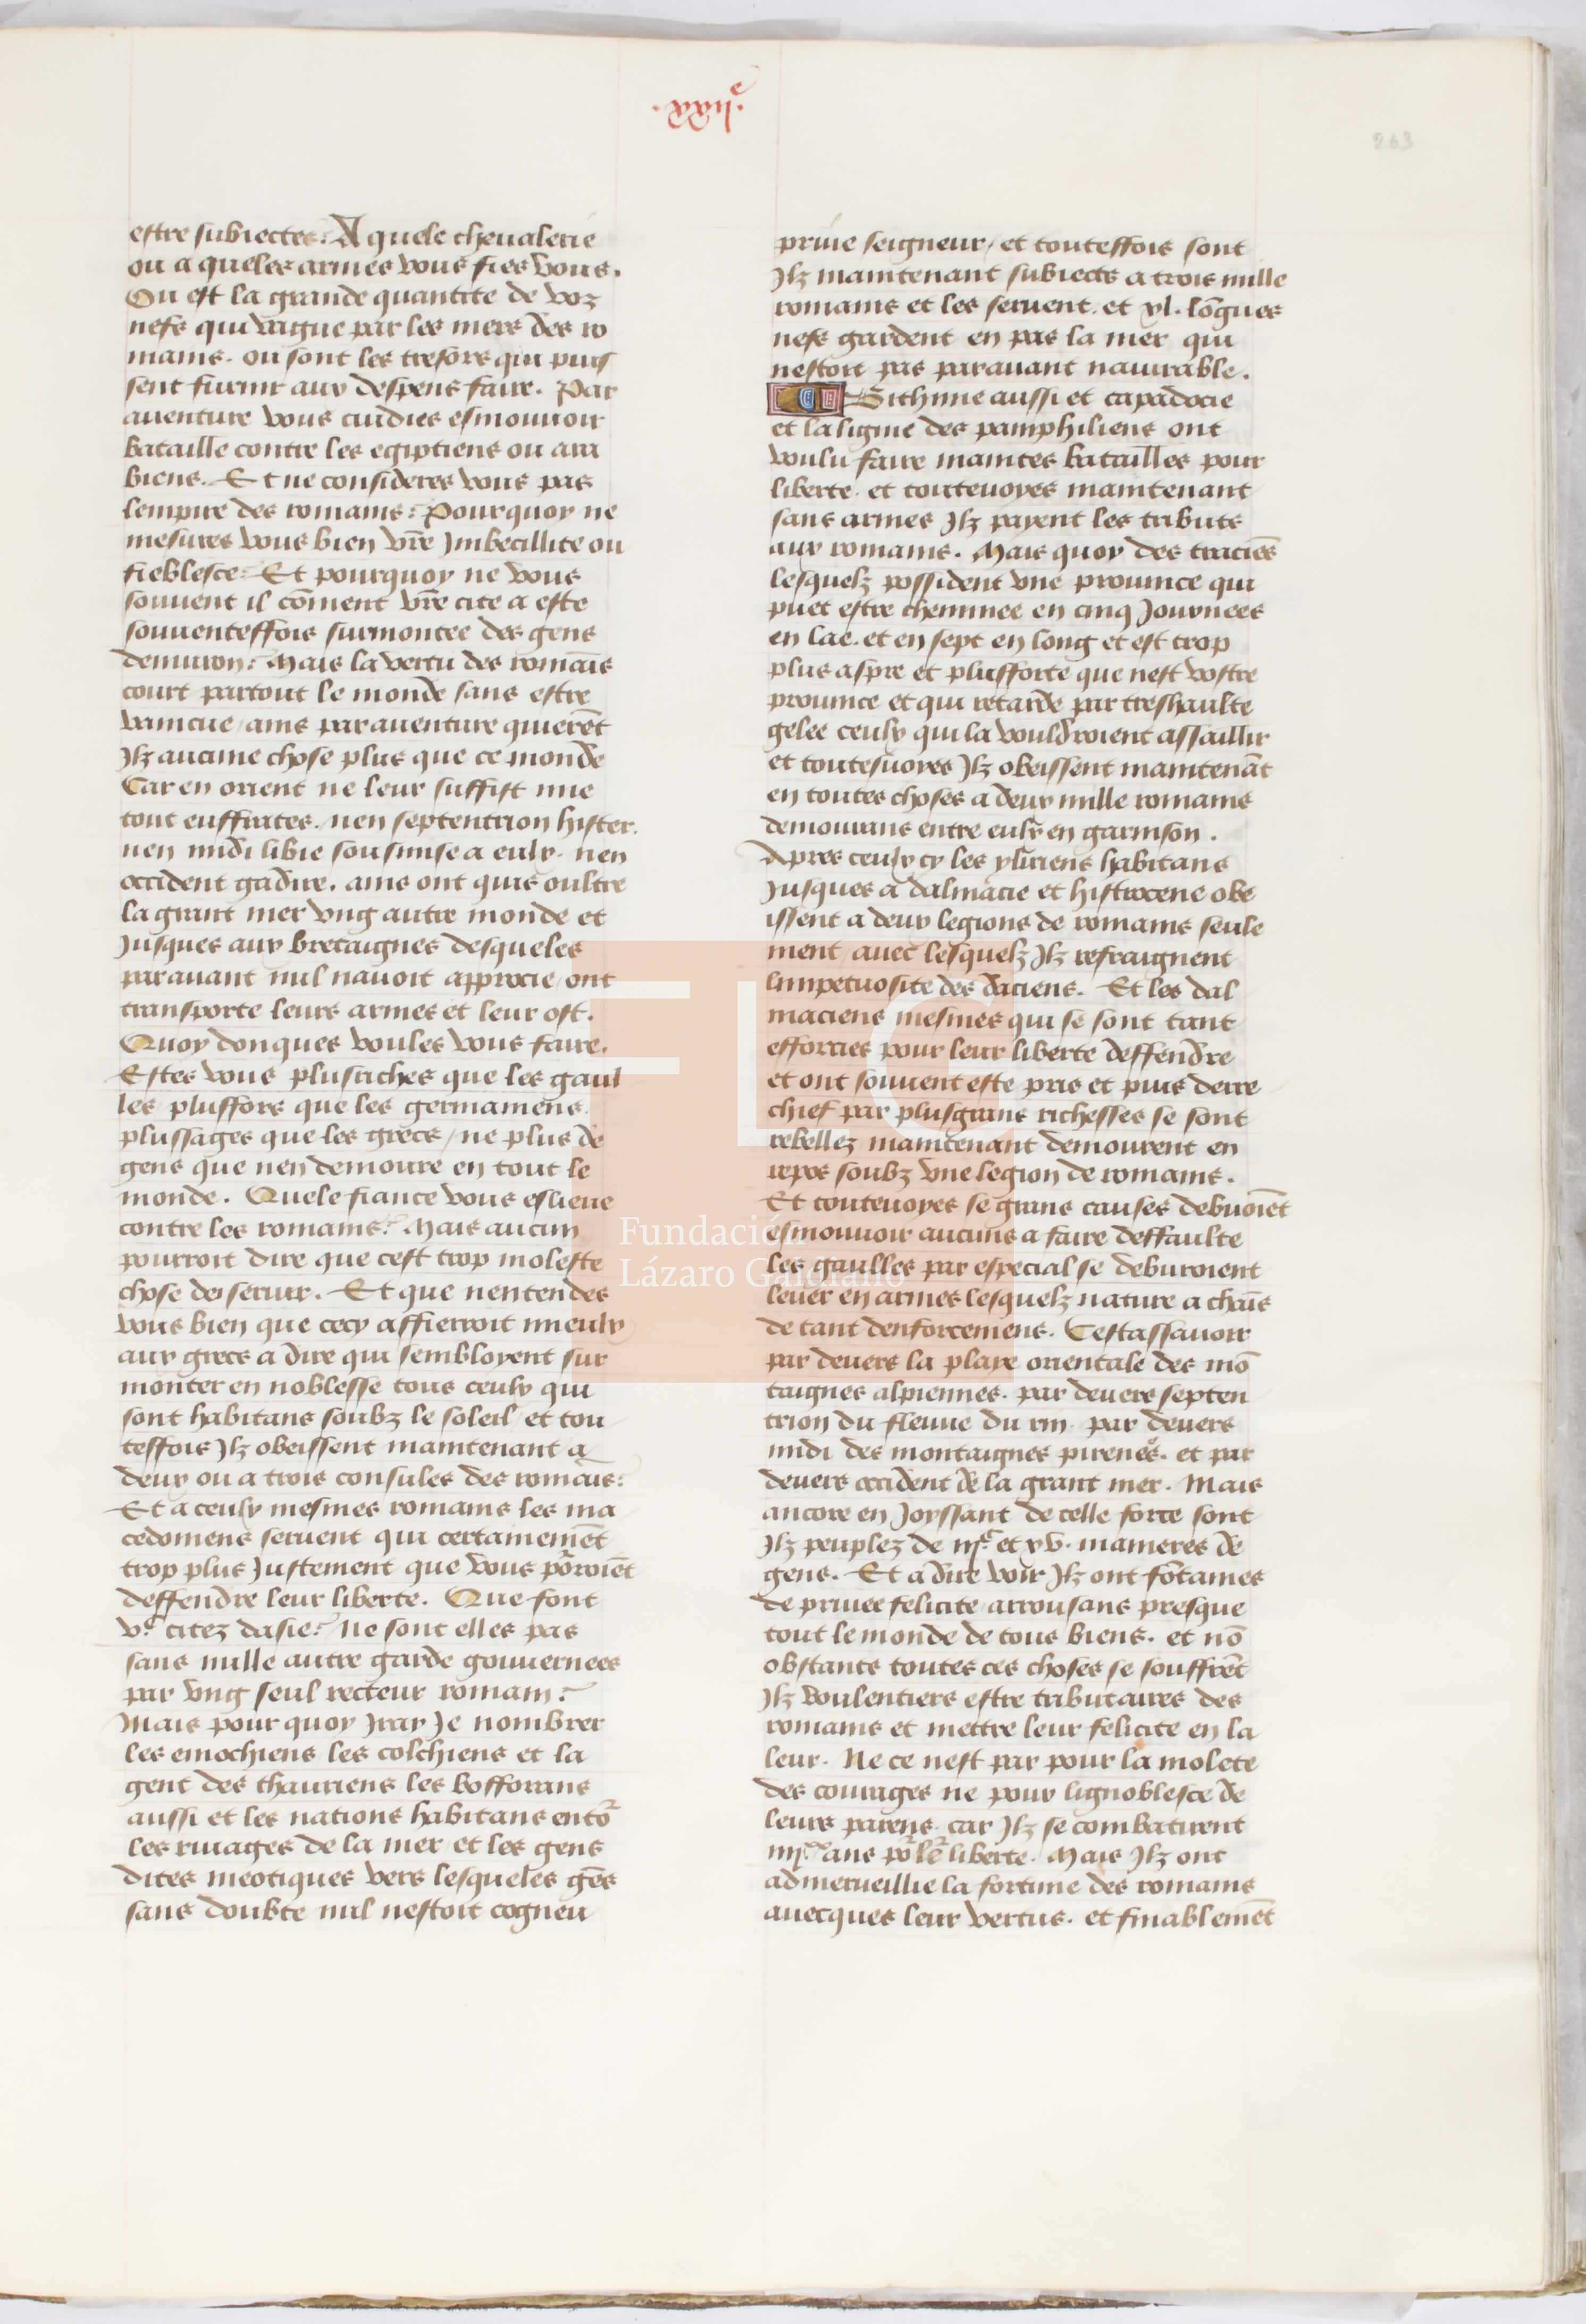 .xxii.e
263
estre subiectes: A quele cheualerie
ou a queles armes vous fies vous.
Ou est la grande quantite de voz
nefs qui vague par les mers des ro
mains. ou sont les tresors qui puis
sent furnir aux despens faire. Par
auenture vous cuidies esmouuoir
bataille contre les egiptiens ou ara
biens. Et ne consideres vous pas
lempire des romains: Pourquoy ne
mesures vous bien vr̃e Imbecillite ou
fieblesce: Et pourquoy ne vous
souuient il cõment vr̃e cite a este
souuenteffois surmontee des gens
denuiron: Mais la vertu des romaĩs
court partout le monde sans estre
vaincue / ains par auenture quierẽt
Ilz aucune chose plus que ce monde
Car en orient ne leur suffist mie
tout euffrates. nen septentrion hister.
nen midi libie sousmise a eulx. nen
occident gadire. ains ont quis oultre
la grant mer vng autre monde et
Jusques aux bretaignes desqueles
parauant nul nauoit approcie / ont
transporte leurs armes et leur ost.
Quoy donques voules vous faire.
Estes vous plusriches que les gaul
les / plusfors que les germaniens.
plussages que les grecs / ne plus de
gens que nen demoure en tout le
monde. Quele fiance vous eslieue
contre les romains: Mais aucun
pourroit dire que cest trop moleste
chose de seruir. Et que nentendes
vous bien que cecy affierroit mieulx
aux grecs a dire qui sembloyent sur
monter en noblesse tous ceulx qui
sont habitans soubz le soleil / et tou
teffois Ilz obeissent maintenant a
deux ou a trois consules des romaĩs:
Et a ceulx mesmes romains les ma
cedoniens seruent qui certainemẽt
trop plus Justement que vous põroiẽt
deffendre leur liberte. Que font
v.c citez dasie: Ne sont elles pas
sans nulle autre garde gouuernees
par vng seul recteur romain:
Mais pour quoy Jray Je nombrer
les eniochiens les colchiens et la
gent des thauriens les bosforans
aussi et les nations habitans ento͛
les riuages de la mer et les gens
dites meotiques vers lesqueles gẽs
sans doubte nul nestoit cogneu
priue seigneur / et touteffois sont
Ilz maintenant subiects a trois mille
romains et les seruent. et xl. lõgues
nefs gardent en pais la mer qui
nestoit pas parauant nauirable.
Bithinie aussi et capadocie
et la lignie des pamphiliens ont
voulu faire maintes batailles pour
liberte. et toutesuoyes maintenant
sans armes Ilz payent les tributs
aux romains. Mais quoy des traciẽs
lesquelz possident vne prouince qui
puet estre cheminee en cinq Journees
en lae. et en sept en long et est trop
plus aspre et plusforte que nest vostre
prouince et qui retarde par treshaulte
gelee ceulx qui la vouldroient assaillir
et toutesuoyes Ilz obeissent maintenãt
en toutes choses a deux mille romains
demourans entre eulx en garnison.
Apres ceulx cy les yliriens habitans
Jusques a dalmacie et histrocene obe
issent a deux legions de romains seule
ment / auec lesquelz Ilz refraignent
limpetuosite des daciens. Et les dal
maciens mesmes qui se sont tant
efforcies pour leur liberte deffendre
et ont souuent este pris et puis derre
chief par plusgrans richesses se sont
rebellez maintenant demourent en
repos soubz vne legion de romains.
Et toutesuoyes se grans causes debuoiẽt
esmouuoir aucuns a faire deffaulte
les gaulles par especial se deburoient
leuer en armes lesquelz nature a chaĩs
de tant denforcemens. Cestassauoir
par deuers la playe orientale des mõ
taignes alpiennes. par deuers septen
trion du fleuue du rin. par deuers
midi des montaignes pirenees. et par
deuers occident de la grant mer. Mais
ancore en Joyssant de celle forte sont
Ilz peuplez de iijc et xv. manieres de
gens. Et a dire voir Ilz ont fõtaines
de priuee felicite arrousans presque
tout le monde de tous biens. et nõ
obstans toutes ces choses se souffrẽt
Ilz voulentiers estre tributaires des
romains et mettre leur felicite en la
leur. Ne ce nest par pour la molete
des courages ne pour lignoblesce de
leurs parens. car Ilz se combatirent
iiijxx ans po͛ le͛ liberte. Mais Ilz ont
admerueillie la fortune des romains
auecques leur vertus. et finablemẽt
FLG
Fundación
Lázaro Galdiano